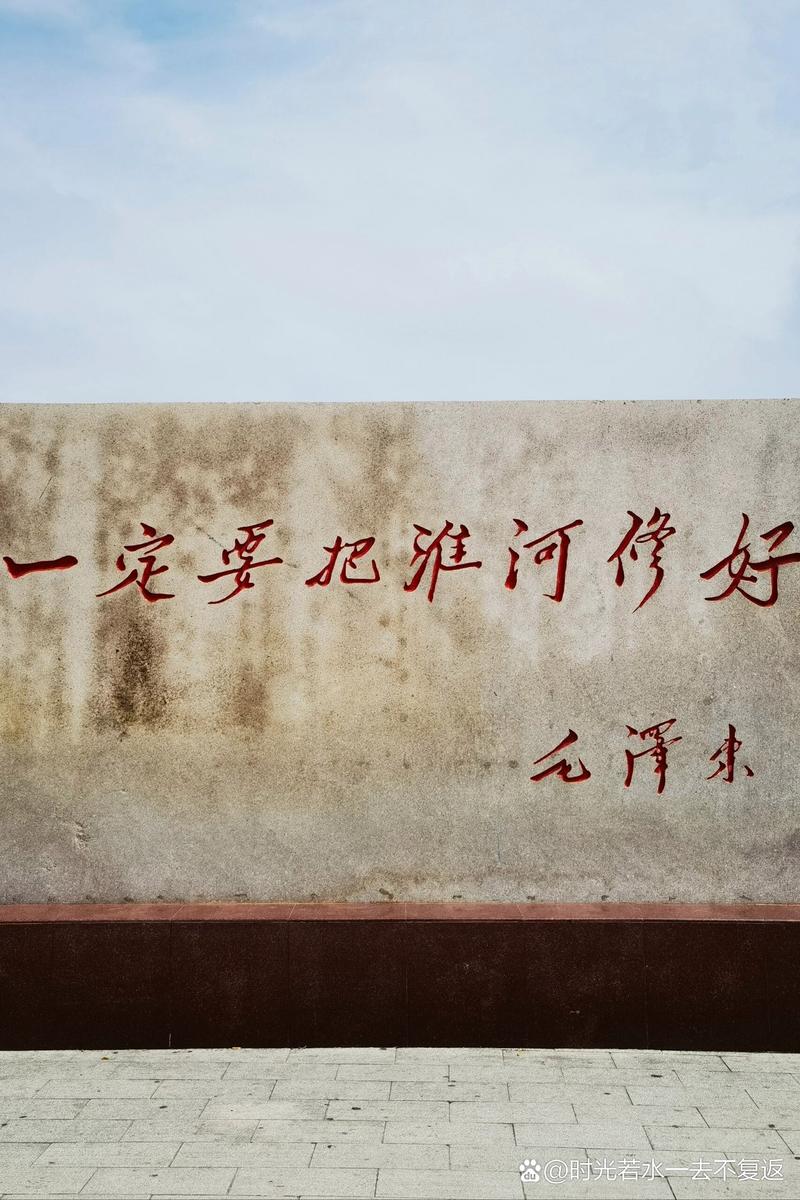 一定要把淮河修好
毛澤东
du @时光若水一去不复返